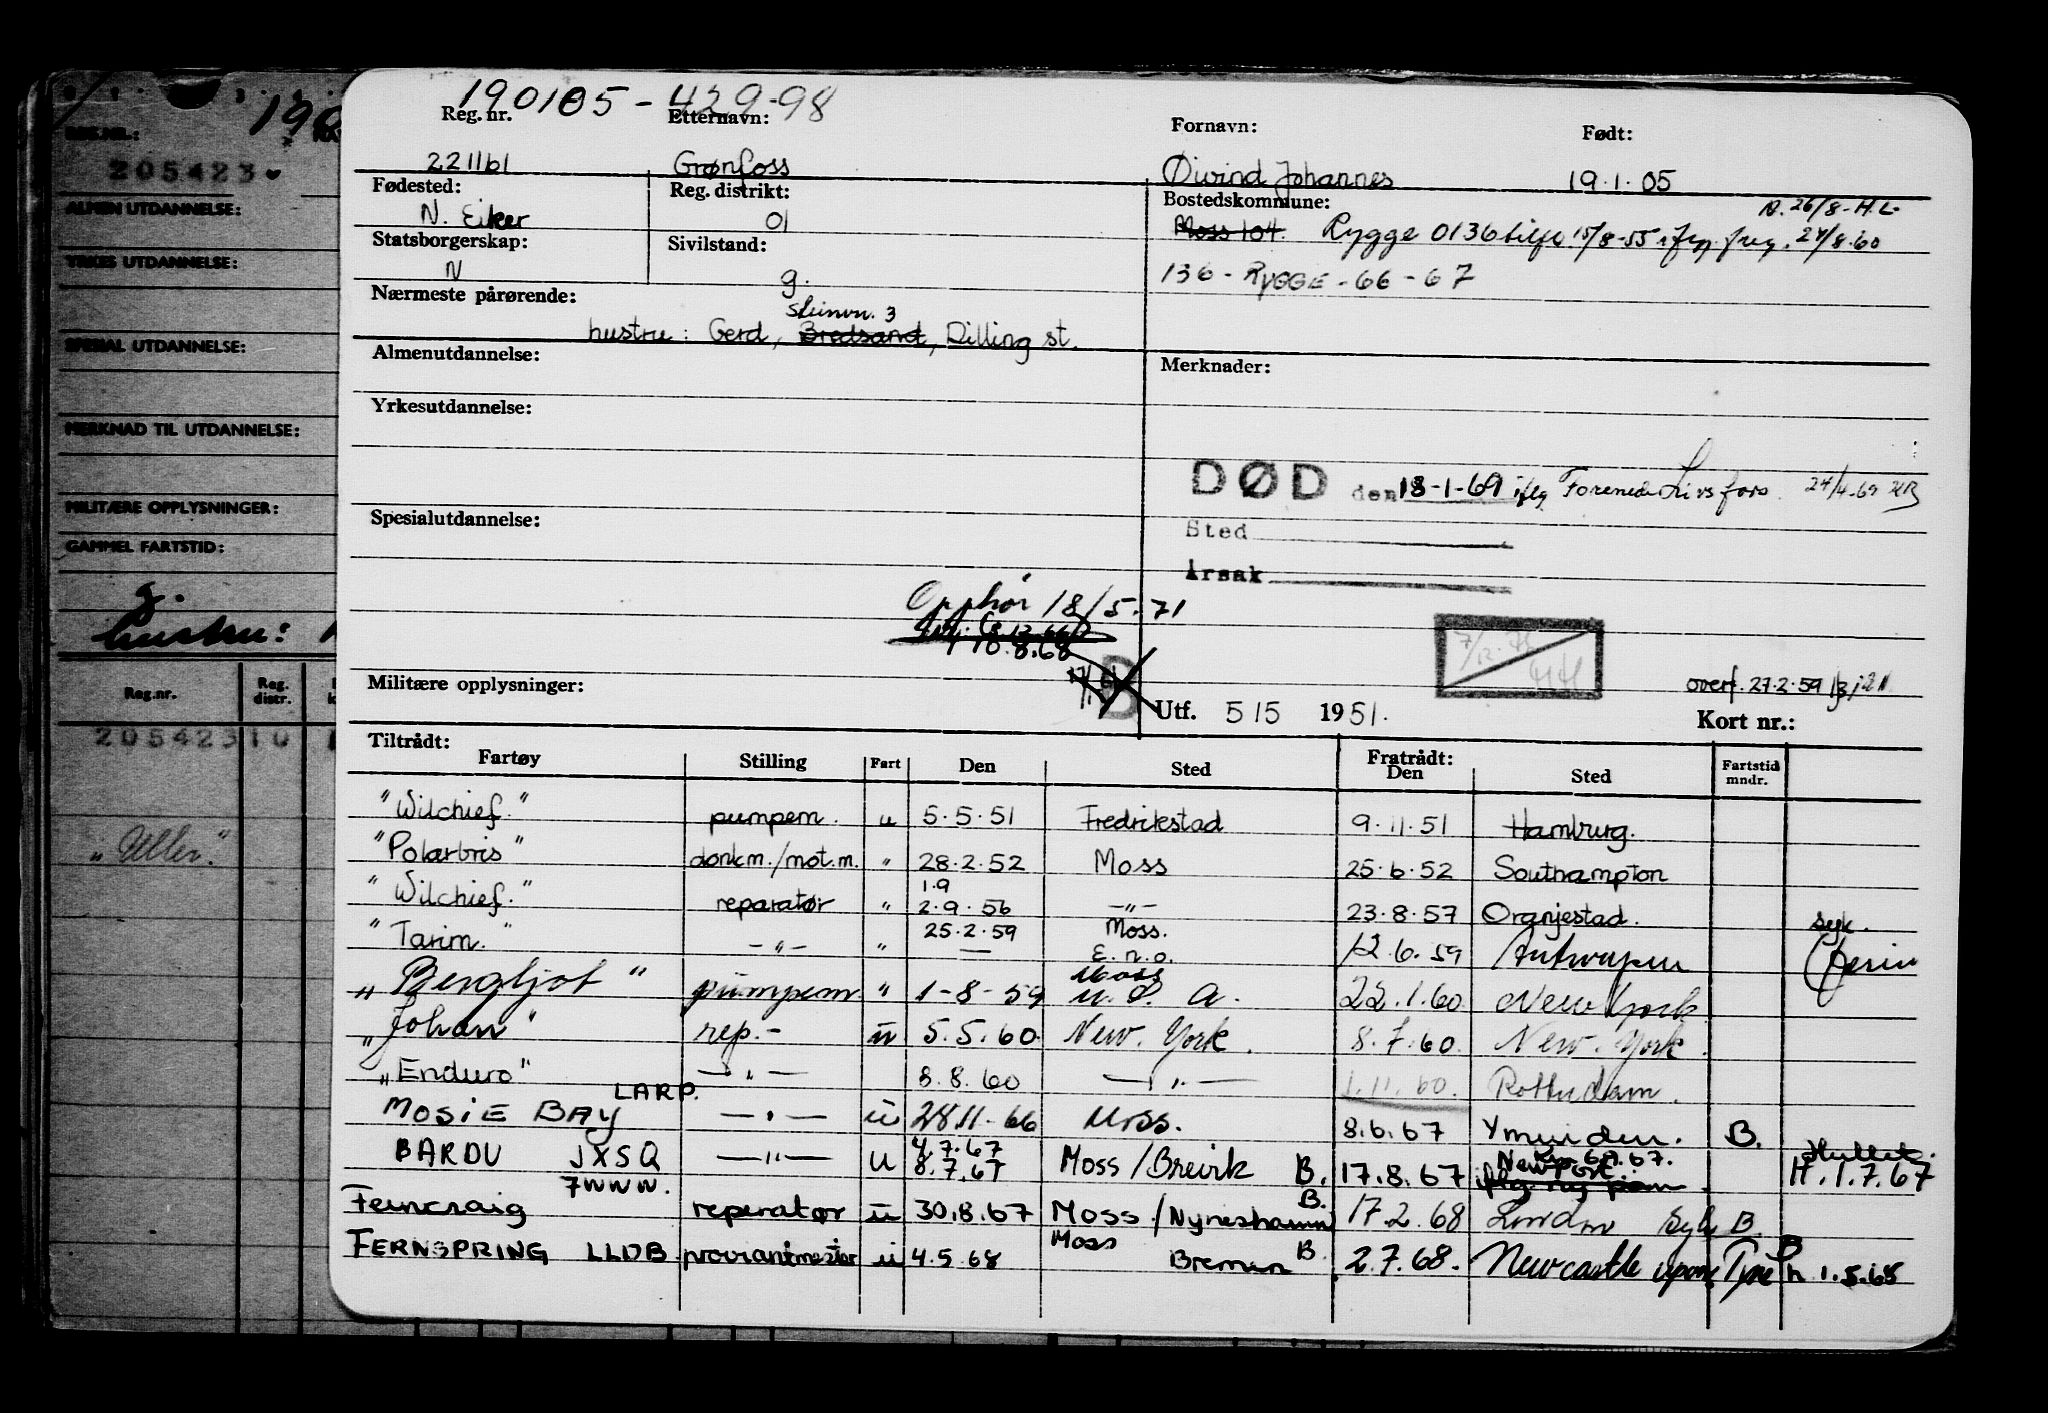 190105-429-98
Reg. nr. Etternavn: Fornavn: Født:
221161 Grønfoss Øivind Johannes 19.1.05
Fødested: Reg. distrikt: Bostedskommune:
N. Eiker 01 Moss 104. Rygge 0136 tilfl. 15/8-55 24/8.60
26/8-H.L.
Statsborgerskap: Sivilstand:
N g.
136 - RYGGE - 66 - 67
Nærmeste pårørende:
Steinvn. 3
hustru: Gerd, Bredsand, Dilling st.
Almenutdannelse: Merknader:
Yrkesutdannelse:
DØD den 18-1-69 iflg Forenede Livsfors. 24/4-69
Spesialutdannelse:
Sted
Årsak
Opphør 18/5-71
10.8.68
B
Militære opplysninger:
overf. 27.2.59
Utf. 515 1951. Kort nr.:
Tiltrådt: Fratrådt:
Fartøy Stilling Fart Den Sted Den Sted Fartstid mndr.
"Wilchief." pumpem. u 5.5.51 Fredrikstad 9.11.51 Hamburg.
"Polarbris" donkm./mot.m. " 28.2.52 Moss 25.6.52 Southampton
1.9
"Wilchief." reparatør " 2.9.56 -"- 23.8.57 Oranjestad. syk.
25.2.59 Moss.
"Tarim." -"- " — E.n.o. 12.6.59 Antwerpen
Moss
"Bergljot" pumpem " 1-8-59 U.S.A. 22.1.60 New York
"Johan" rep.- u 5.5.60 New York. 8.7.60. New York.
"Enduro" -"- 8.8.60 -"- 1.11.60. Rotterdam.
LARP.
MOSIE BAY -"- u 28.11.66 Moss. 8.6.67 Ymuiden. B.
4.7.67
BARDU JXSQ -"- u 8.7.67 Moss/Brevik B. 17.8.67 Newport H. 1.7.67
7WWW.
Ferncraig reparatør u 30.8.67 Moss/Nyneshamn B. 17.2.68 London Syk B
Moss
FERNSPRING LLDB proviantmester u 4.5.68 Bremen B. 2.7.68. Newcastle upon Tyne B h 1.5.68
190
REG.NR.:
205423
ALMEN UTDANNELSE:
YRKES UTDANNELSE:
SPESIAL UTDANNELSE:
MERKNAD TIL UTDANNELSE:
MILITÆRE OPPLYSNINGER:
GAMMEL FARTSTID:
g.
hustru:
Reg.nr. Reg. distr.
205423 10
"Uller."